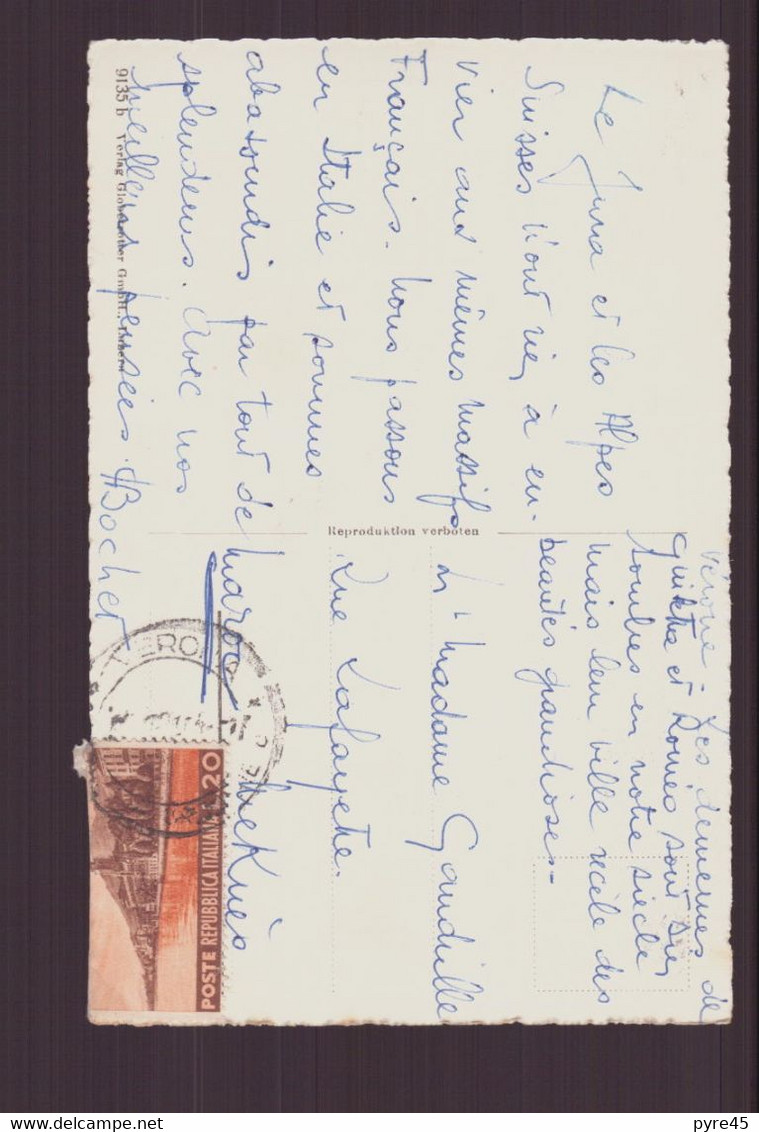 Le Jura et les Alpes
Suisses n'ont rien à en-
vier aux mêmes massifs
Français. Nous passons
en Italie et sommes
abasourdis par tout de
splendeurs. Avec nos
meilleures pensées. HBochet
9135 b Verlag Globetrotter GmbH., Luzern
Reproduktion verboten
Vérone - Les demeures de
et Roméo sont bien
sombres en notre siècle
mais leur ville recèle des
beautés grandioses -
Madame Gandrille
Rue Lafayette.
Meknès
Maroc
VERONA
POSTE REPUBBLICA ITALIANA L. 20
pyre45